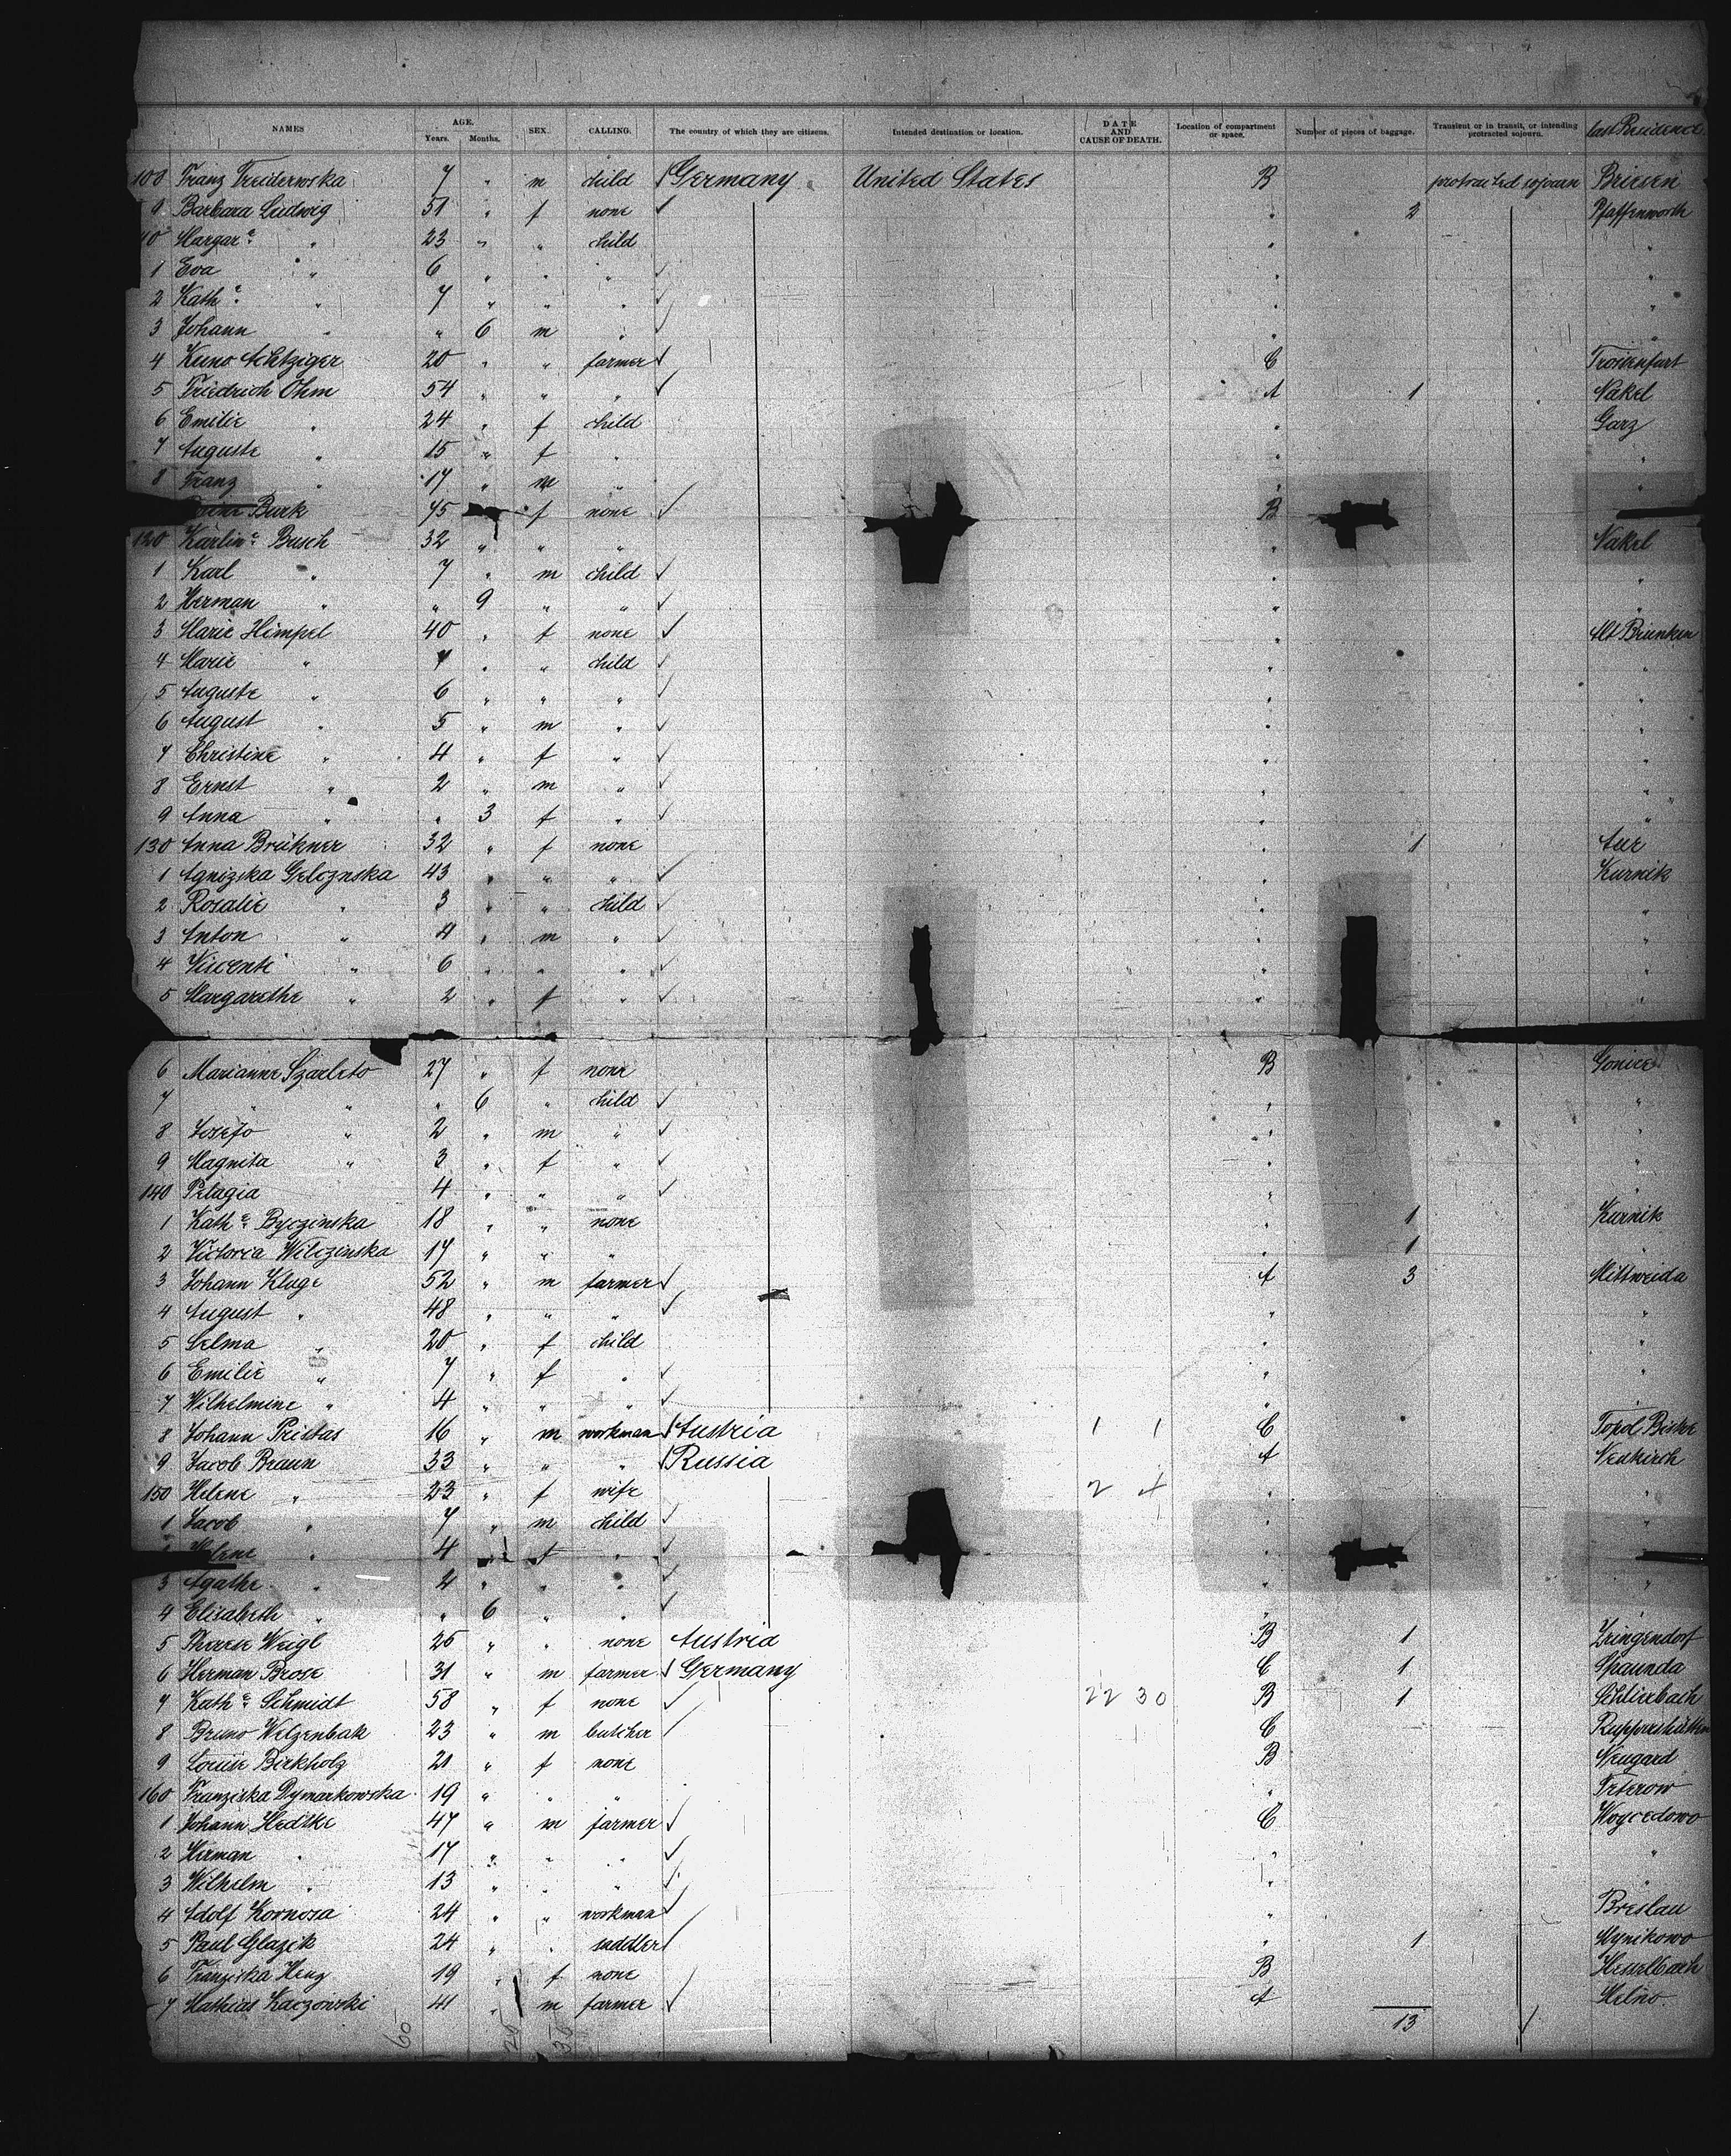 NAMES AGE. Years. Months. SEX. CALLING. The country of which they are citizens. Intended destination or location. DATE AND CAUSE OF DEATH. Location of compartment or space. Number of pieces of baggage. Transient or in transit, or intending protracted sojourn. last Residence
108 Franz Treiderwska 7 " m child Germany United States B protracted sojourn Briesen
9 Barbara Ludwig 51 " f none " 2 Pfaffenworth
10 Margar e. " 23 " " child " "
1 Eva " 6 " " " " "
2 Kath e. " 7 " " " " "
3 Johann " " 6 m " " "
4 Kuno Achtziger 20 " " farmer C
5 Friedrich Ohm 54 " " " A 1 Nakel
6 Emilie " 24 " f child " Garz
7 Auguste " 15 " f " " "
8 Franz " 17 " m " " "
Burk 45 f none B
120 Karlin e. Busch 32 " " " " Nakel
1 Karl " 7 " m child " "
2 Herman " " 9 " " " "
3 Marie Himpel 40 " f none " Alt Brunken
4 Marie " 7 " " child " "
5 Auguste " 6 " " " " "
6 August " 5 " m " " "
7 Christine " 4 " f " " "
8 Ernst " 2 " m " " "
9 Anna " " 3 f " " "
130 Anna Brükner 32 " f none " 1 Aue
1 Agnizska Gelcznska 43 " " " " Kurnik
2 Rosalie " 3 " " child " "
3 Anton " 4 " m " " "
4 Vincenti " 6 " " " " "
5 Margarethe " 2 " f " " "
6 Marianne Szarleto 27 " f none B Gonice
7 " " " 6 " child " "
8 Josefo " 2 " m " " "
9 Magnita " 3 " f " " "
140 Pelagia 4 " " " " "
1 Kath e. Byczinska 18 " " none " 1 Kurnik
2 Victoria Wilczinska 17 " " " " 1 "
3 Johann Kluge 52 " m farmer A 3 Mittweida
4 August " 48 " " " " "
5 Selma " 20 " f child " "
6 Emilie " 7 " f " " "
7 Wilhelmine " 4 " " " " "
8 Johann Pristas 16 " m workman Austria 1 1 C
9 Jacob Braun 33 " " " Russia A Neukirch
150 Helene " 23 " f wife 2 4 " "
1 Jacob " 7 " m child " "
Helene " 4 " f " " "
3 Agathe " 2 " " " " "
4 Elisabeth " " 6 " " " "
5 Therese Weigl 25 " " none Austria B 1 Zringendorf
6 Herman Brose 31 " m farmer Germany C 1 Spaunda
7 Kath e. Schmidt 58 " f none 22 30 B 1 Schlierbach
8 Bruno Welzenbak 23 " m butcher C Ruppershütten
9 Louise Birkholz 21 " f none B Neugard
160 Franziska Dymarkowska 19 " " " " Peterow
1 Johann Hedtke 47 " m farmer C Woycedowo
2 Herman " 17 " " " " "
3 Wilhelm " 13 " " " " "
4 Adolf Kornosa 24 " " workman " Breslau
5 Paul Glazik 24 " " saddler " 1 Mynikowo
6 Franziska Heuz 19 " f none B Hesselbach
7 Mathias Kaczowski 41 " m farmer A Melno
13
60 25 35